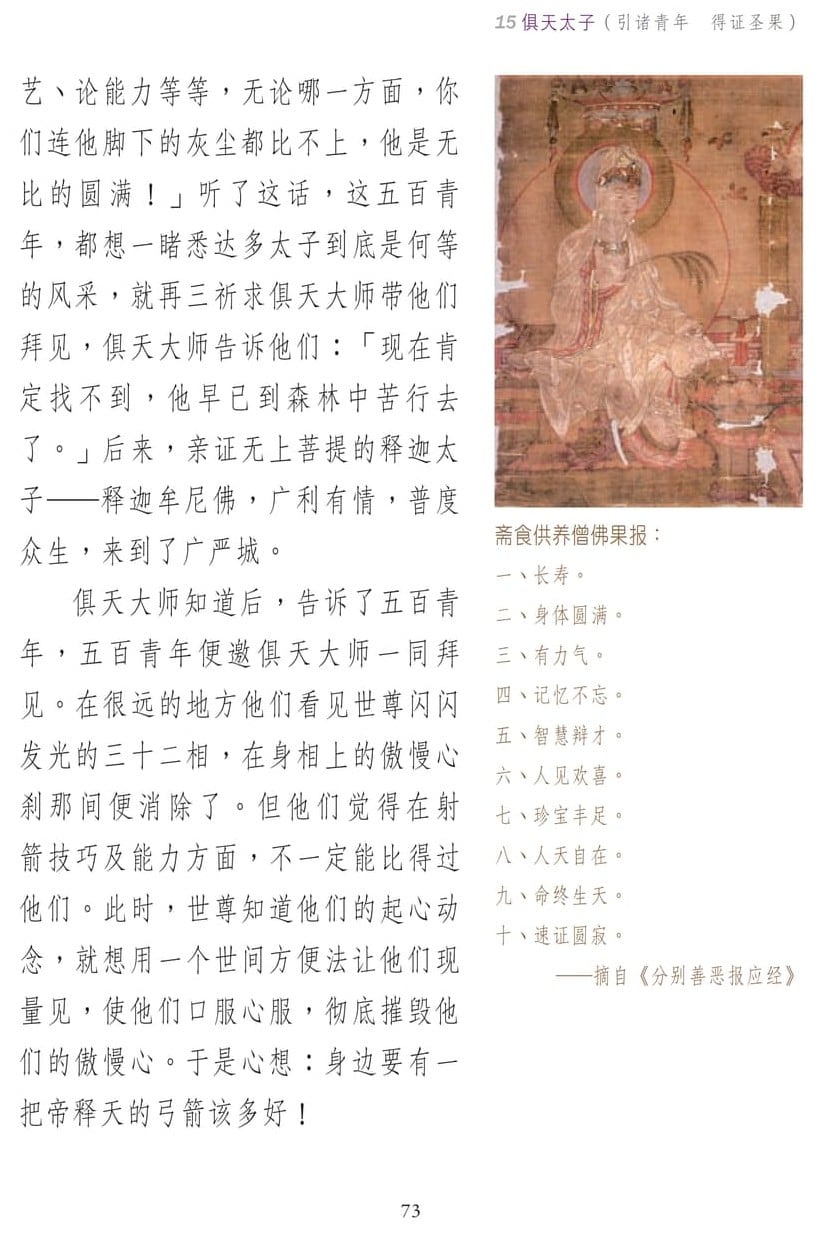 15 俱天太子（引诸青年　得证圣果）
艺、论能力等等，无论哪一方面，你
们连他脚下的灰尘都比不上，他是无
比的圆满！」听了这话，这五百青
年，都想一睹悉达多太子到底是何等
的风采，就再三祈求俱天大师带他们
拜见，俱天大师告诉他们：「现在肯
定找不到，他早已到森林中苦行去
了。」后来，亲证无上菩提的释迦太
子——释迦牟尼佛，广利有情，普度
众生，来到了广严城。
俱天大师知道后，告诉了五百青
年，五百青年便邀俱天大师一同拜
见。在很远的地方他们看见世尊闪闪
发光的三十二相，在身相上的傲慢心
刹那间便消除了。但他们觉得在射
箭技巧及能力方面，不一定能比得过
他们。此时，世尊知道他们的起心动
念，就想用一个世间方便法让他们现
量见，使他们口服心服，彻底摧毁他
们的傲慢心。于是心想：身边要有一
把帝释天的弓箭该多好！
斋食供养僧佛果报：
一、长寿。
二、身体圆满。
三、有力气。
四、记忆不忘。
五、智慧辩才。
六、人见欢喜。
七、珍宝丰足。
八、人天自在。
九、命终生天。
十、速证圆寂。
——摘自《分别善恶报应经》
73